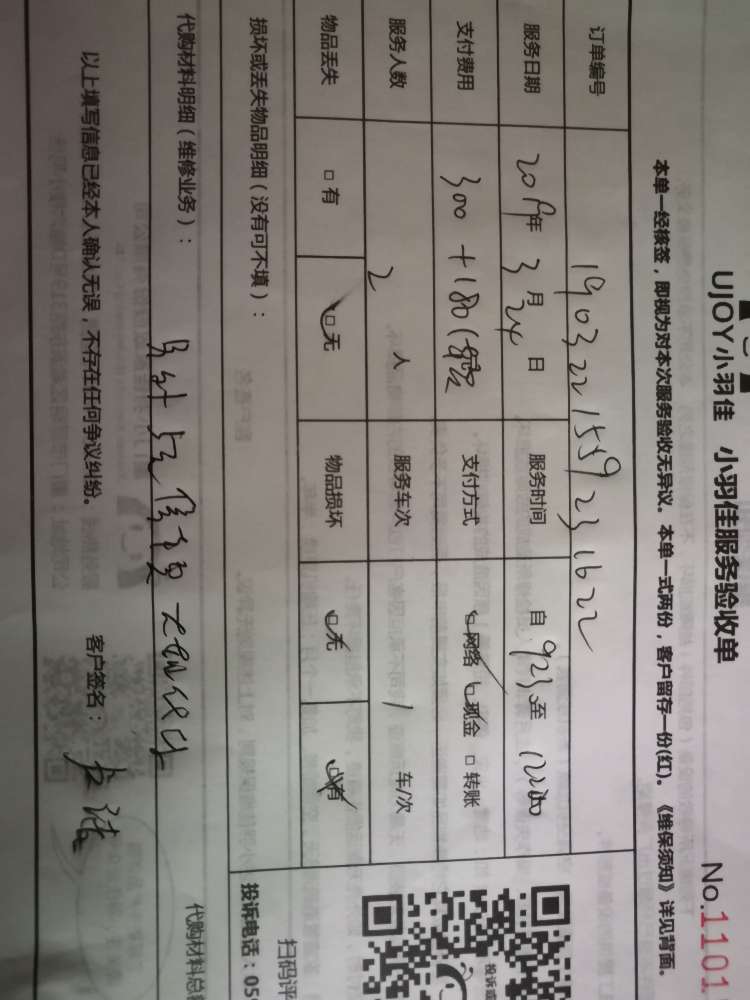 UJOY小羽佳 小羽佳服务验收单
No.1101
本单一经核签，即视为对本次服务验收无异议。本单一式两份，客户留存一份(红)。《维保须知》详见背面。
订单编号 1903221559231622
服务日期 2019年3月24日 服务时间 自 923 至 1200
支付费用 300+180( 支付方式 □网络 □现金 □转账
服务人数 2 人 服务车次 1 车/次
物品丢失 □有 □无 物品损坏 □无 □有
损坏或丢失物品明细（没有可不填）：
投诉电话：059
扫码评
投诉或
代购材料明细（维修业务）：
代购材料总额
以上填写信息已经本人确认无误，不存在任何争议纠纷。 客户签名：